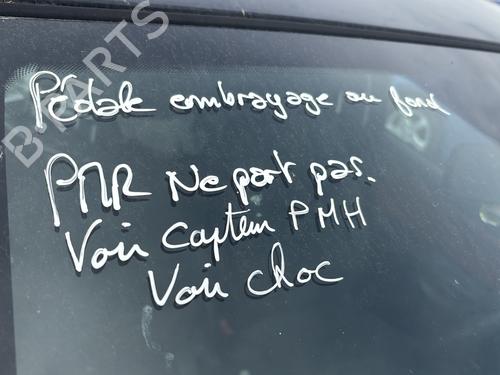 B-PARTS
Pédale embrayage au fond
PMR Ne part pas.
Voir Capteur PMH
Voir choc